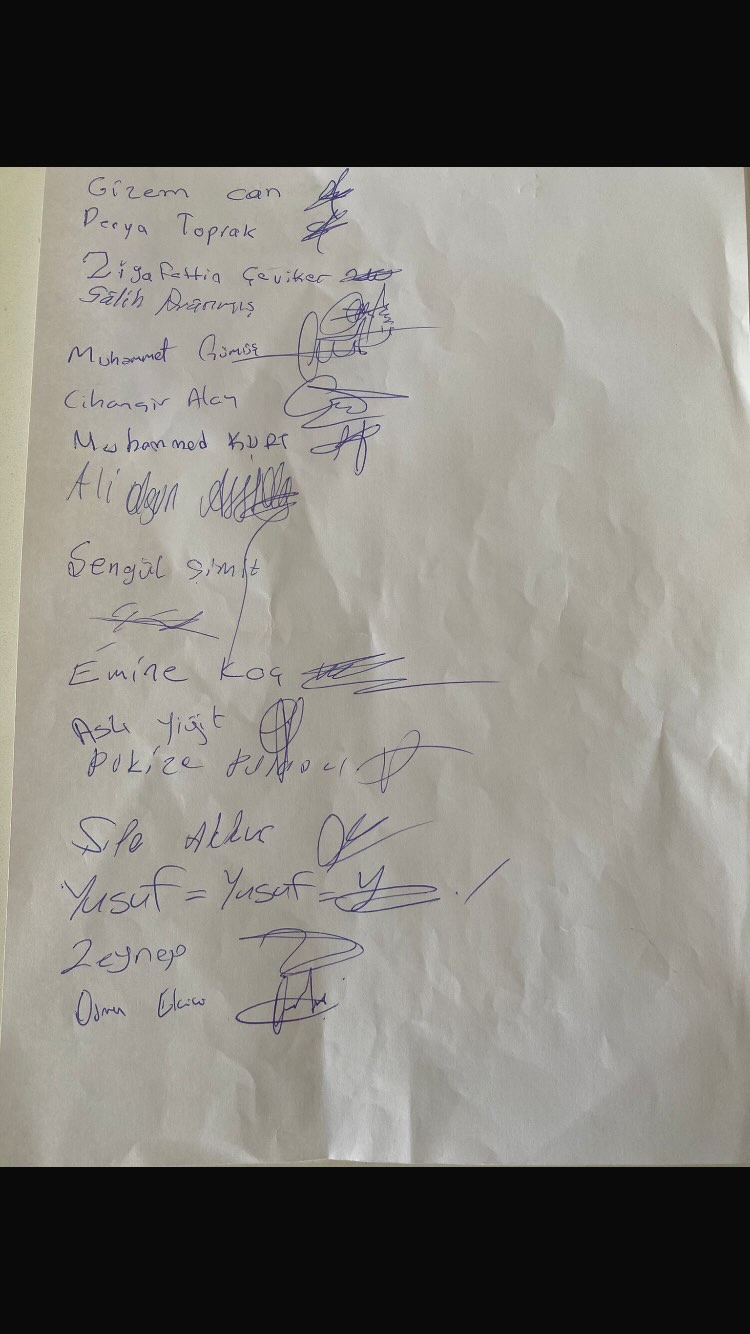 Gizem can
Derya Toprak
Ziyafettin Çeviker
Salih
Muhammet Gümüş
Cihangir Alay
Muhammed KURT
Ali
Şengül Şimit
Emine Koç
Aslı Yiğit
Pakize
Akkuş
Yusuf = Yusuf = Y
Zeynep